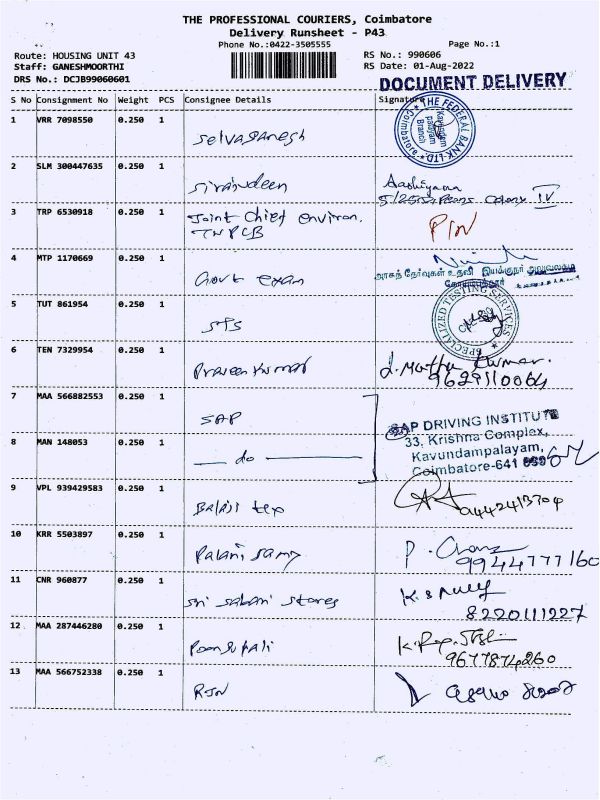 THE PROFESSIONAL COURIERS, Coimbatore
Delivery Runsheet - P43
Phone No.:0422-3505555
Page No.:1
Route: HOUSING UNIT 43
RS No.: 990606
Staff: GANESHMOORTHI
RS Date: 01-Aug-2022
DRS No.: DCJB99060601
DOCUMENT DELIVERY
S No Consignment No Weight PCS Consignee Details Signature
1 VRR 7098550 0.250 1 Selvaganesh
THE FEDERAL BANK LTD Coimbatore
Kavundam
palayam
Branch
2 SLM 300447635 0.250 1 Sirajudeen Aashiyana
Colony IV
3 TRP 6530918 0.250 1 Joint Chief Environ.
TNPCB
4 MTP 1170669 0.250 1 Govt Exam
அரசுத் தேர்வுகள் உதவி இயக்குநர் அலுவலகம்
கோயம்புத்தூர்
5 TUT 861954 0.250 1 STS
SPECIALIZED TESTING SERVICES
6 TEN 7329954 0.250 1 Praveen Kumar
9629110064
7 MAA 566882553 0.250 1 SAP
SAP DRIVING INSTITUTE
33, Krishna Complex,
Kavundampalayam,
Coimbatore-641
8 MAN 148053 0.250 1 — do —
9 VPL 939429583 0.250 1 Balaji tex
10 KRR 5503897 0.250 1 Palani samy
9944777160
11 CNR 960877 0.250 1 Sri Sabari Stores
8220111227
12 MAA 287446280 0.250 1
9677874260
13 MAA 566752338 0.250 1 RJN